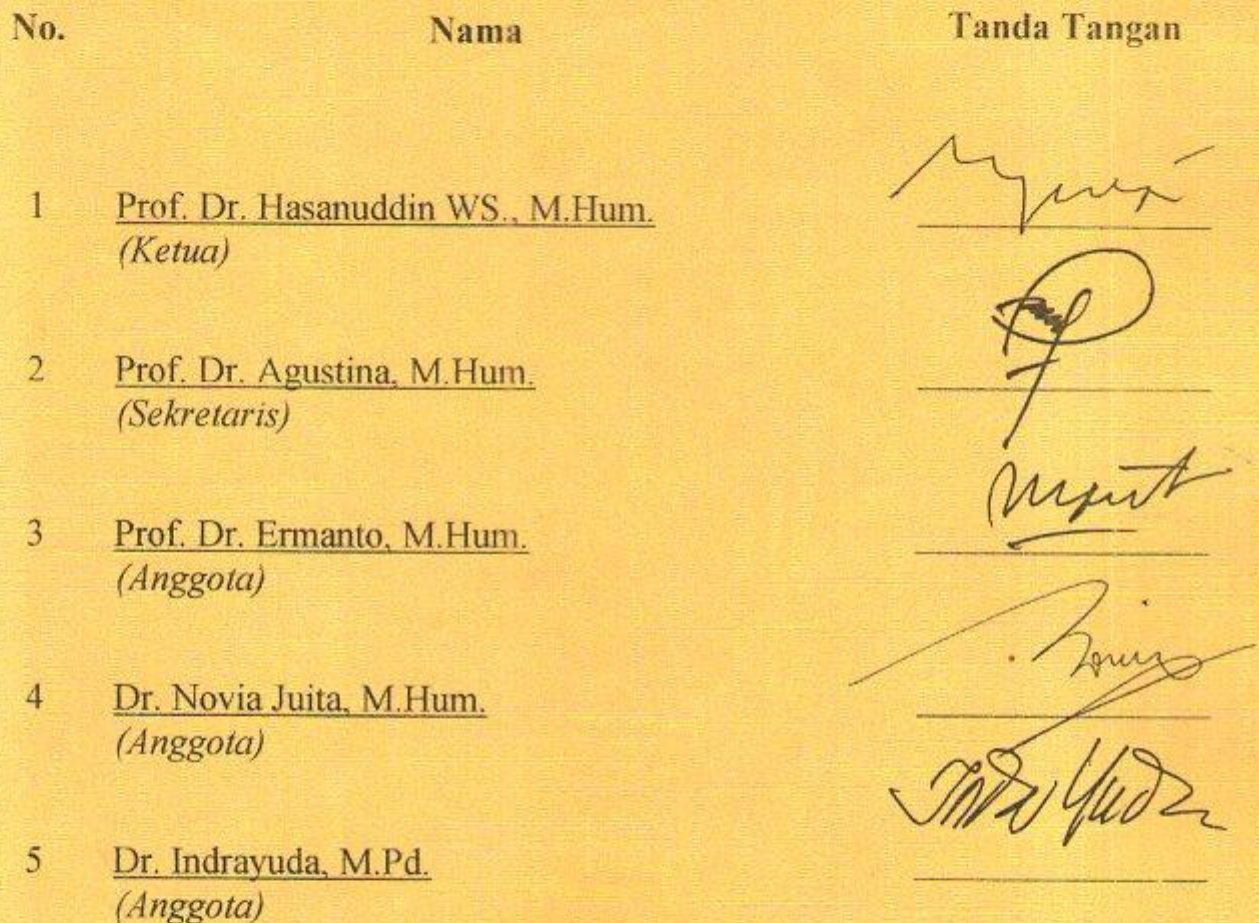 No. Nama Tanda Tangan
1 Prof. Dr. Hasanuddin WS., M.Hum.
(Ketua)
2 Prof. Dr. Agustina, M.Hum.
(Sekretaris)
3 Prof. Dr. Ermanto, M.Hum.
(Anggota)
4 Dr. Novia Juita, M.Hum.
(Anggota)
Indra Yuda
5 Dr. Indrayuda, M.Pd.
(Anggota)